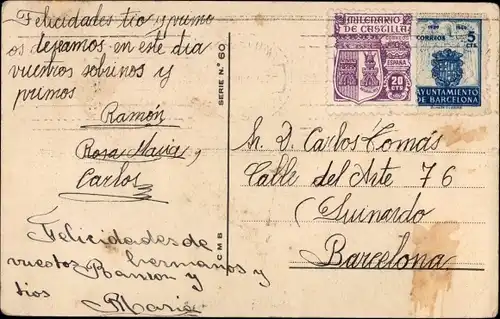 Felicidades tio y primo
os deseamos en este dia
vuestros sobrinos y
primos
Ramón
Rosa Maria y
Carlos
Felicidades de
vuestos hermanos y
tios Ramon y
Maria
SERIE N.º 60
C M B
MILENARIO DE CASTILLA
ESPAÑA
20 CTS
CORREOS
5 CTS
AYUNTAMIENTO
DE BARCELONA
Sr. D. Carlos Tomás
Calle del Arte 76
(Guinardo
Barcelona